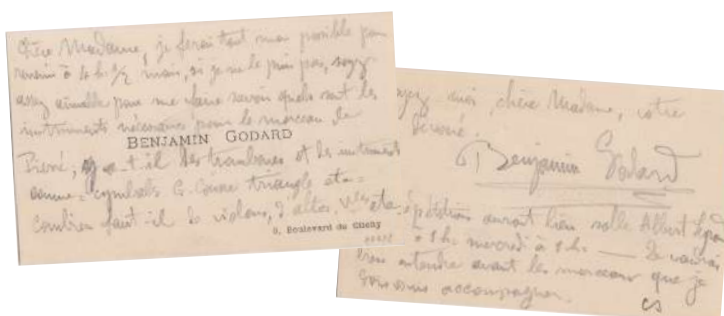 Chère Madame, je ferai tout mon possible pour
venir à 10 h. 1/2 mais, si je ne le puis pas, soyez
assez aimable pour me faire savoir quels sont les
instruments nécessaires pour le morceau de
BENJAMIN GODARD
Pierné, y a-t-il des trombones et des instruments
comme cymbales G. Caisse triangle etc=
Combien faut-il de violons, d'altos, Vlles etc
9, Boulevard de Clichy
moi, chère Madame, votre
dévoué.
Benjamin Godard
répétitions auront lieu salle Albert
à 1 h. mercredi à 1 h. — Je voudrais
bien entendre avant les morceaux que je
accompagner.